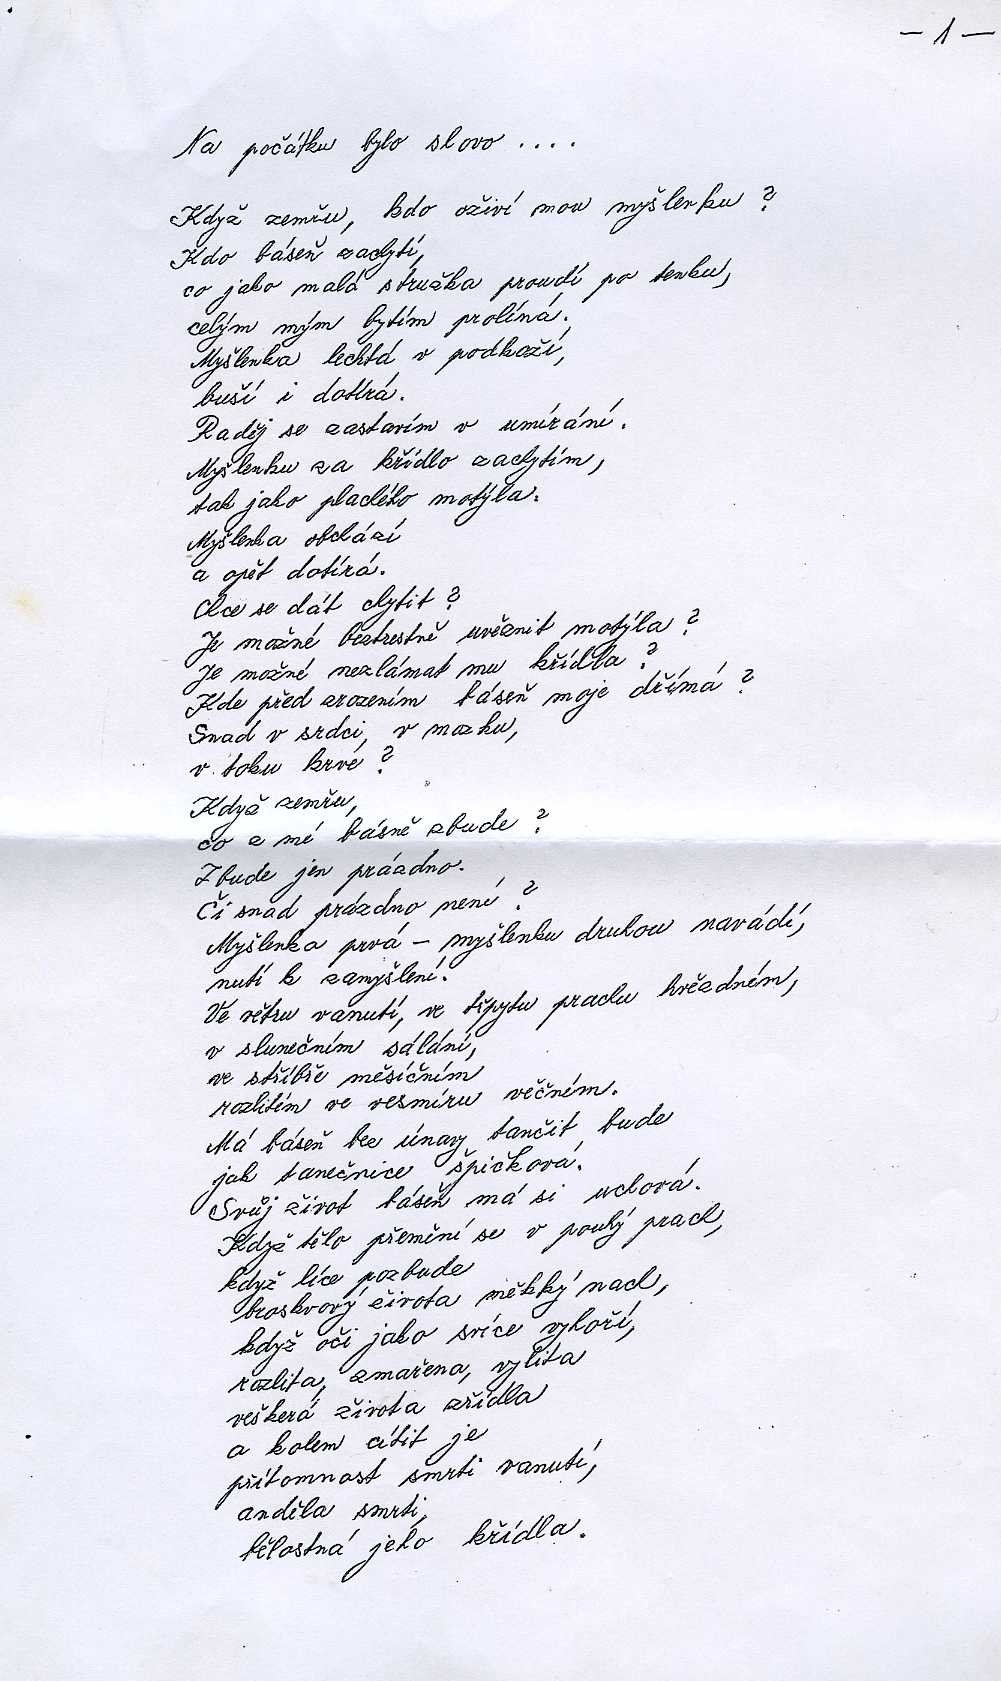 – 1 –
Na počátku bylo slovo ....
Když zemřu, kdo oživí mou myšlenku ?
Kdo báseň zachytí,
co jako malá stružka proudí po tenku,
celým mým bytím prolíná.
Myšlenka lechtá v podkoží,
buší i dotírá.
Raděj se zastavím v umírání.
Myšlenku za křídlo zachytím,
tak jako plachého motýla.
Myšlenka obchází
a opět dotírá.
Chce se dát chytit ?
Je možné beztrestně uvěznit motýla ?
Je možné nezlámat mu křídla ?
Kde před zrozením báseň moje dřímá ?
Snad v srdci, v mozku,
v toku krve ?
Když zemřu,
co z mé básně zbude ?
Zbude jen práazdno.
Či snad prázdno není ?
Myšlenka prvá – myšlenku druhou navádí,
nutí k zamyšlení.
Ve větru vanutí, ve třpytu prachu hvězdném,
v slunečním sálání,
ve stříbře měsíčním
rozlitém ve vesmíru věčném.
Má báseň bez únavy tančit bude
jak tanečnice špičková.
Svůj život báseň má si uchová.
Když tělo přemění se v pouhý prach,
když líce pozbude
broskvový života měkký nach,
když oči jako svíce vyhoří,
rozlita, zmařena, vylita
veškerá života zřídla
a kolem cítit je
přítomnost smrti vanutí,
anděla smrti,
bělostná jeho křídla.